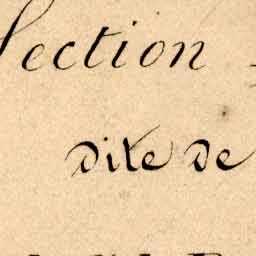 Section
dite de